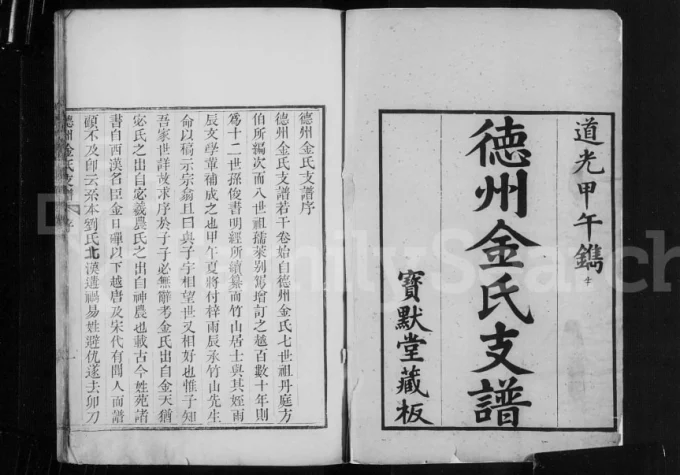 道光甲午鐫
德州金氏支譜
寶默堂藏板
德州金氏支譜序
德州金氏支譜若干卷始自德州金氏七世祖丹庭方
伯所編次而八世祖孺萊別駕增訂之越百數十年則
爲十二世孫俊書明經所續纂而竹山居士與其姪雨
辰文學輩補成之也甲午夏將付梓雨辰承竹山先生
命以稿示宗翁且曰與子字相望世又相好也惟子知
吾家世詳故求序於子子必無辭考金氏出自金天猶
宓氏之出自宓羲農氏之出自神農也載古今姓苑諸
書自西漢名臣金日磾以下越唐及宋代有聞人而譜
顧不及卽云系本劉氏北漢遘禍易姓避仇遂去卯刀
德州金氏支譜 序
FamilySearch